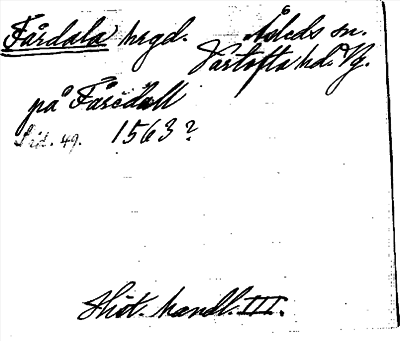 Fårdala hrgd. Åsleds sn.
Vartofta hd. Vg.
på Fåredall
Sid. 49. 1563?
Hist. handl. III.